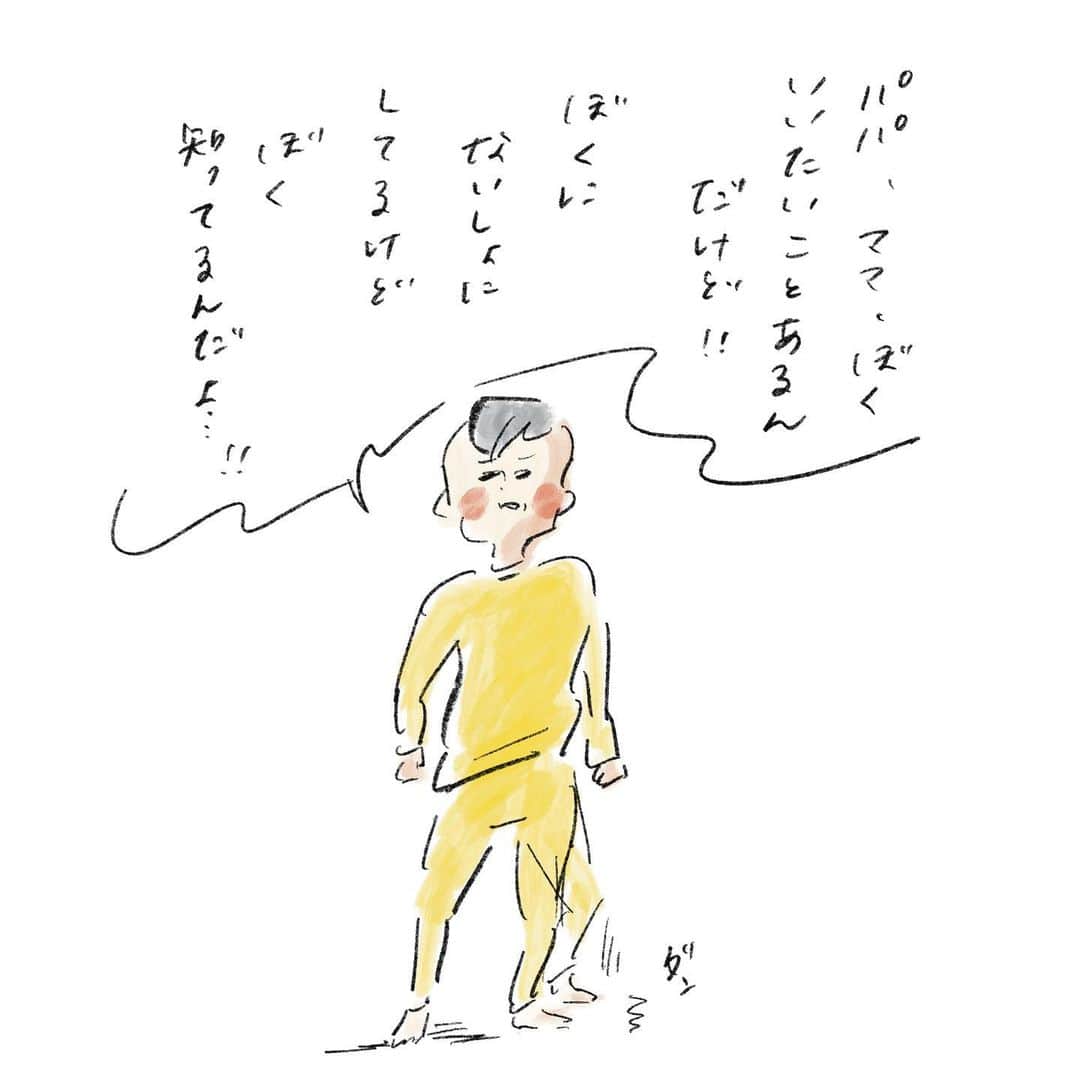 パパ、ママ、ぼく
いいたいことあるん
だけど!!
ぼくに
ないしょに
してるけど
ぼく
知ってるんだよ…!!
ダン